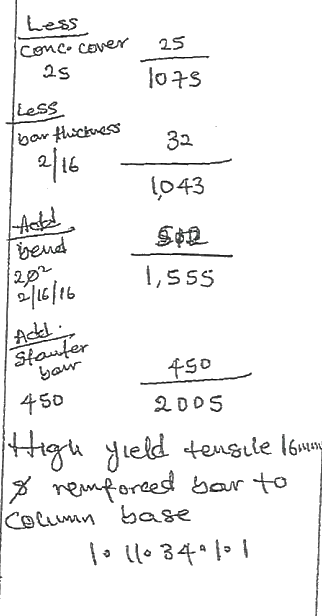 Less
Conc. cover 25
25 1075
Less
bar thickness 32
2/16 1,043
Add
bend 512
2/16/16 1,555
Add.
Stauter
bar 450
450 2005
High yield tensile 16mm
& reinforced bar to
Column base
1.11.34.1.1